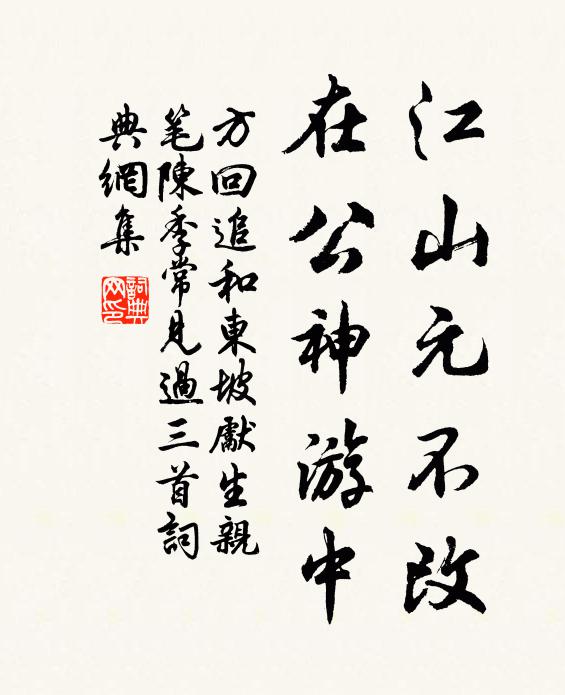 江山元不改
在公神游中
方回追和東坡獻生親
笔陳季常見過三首詞
典網集
詞典网印